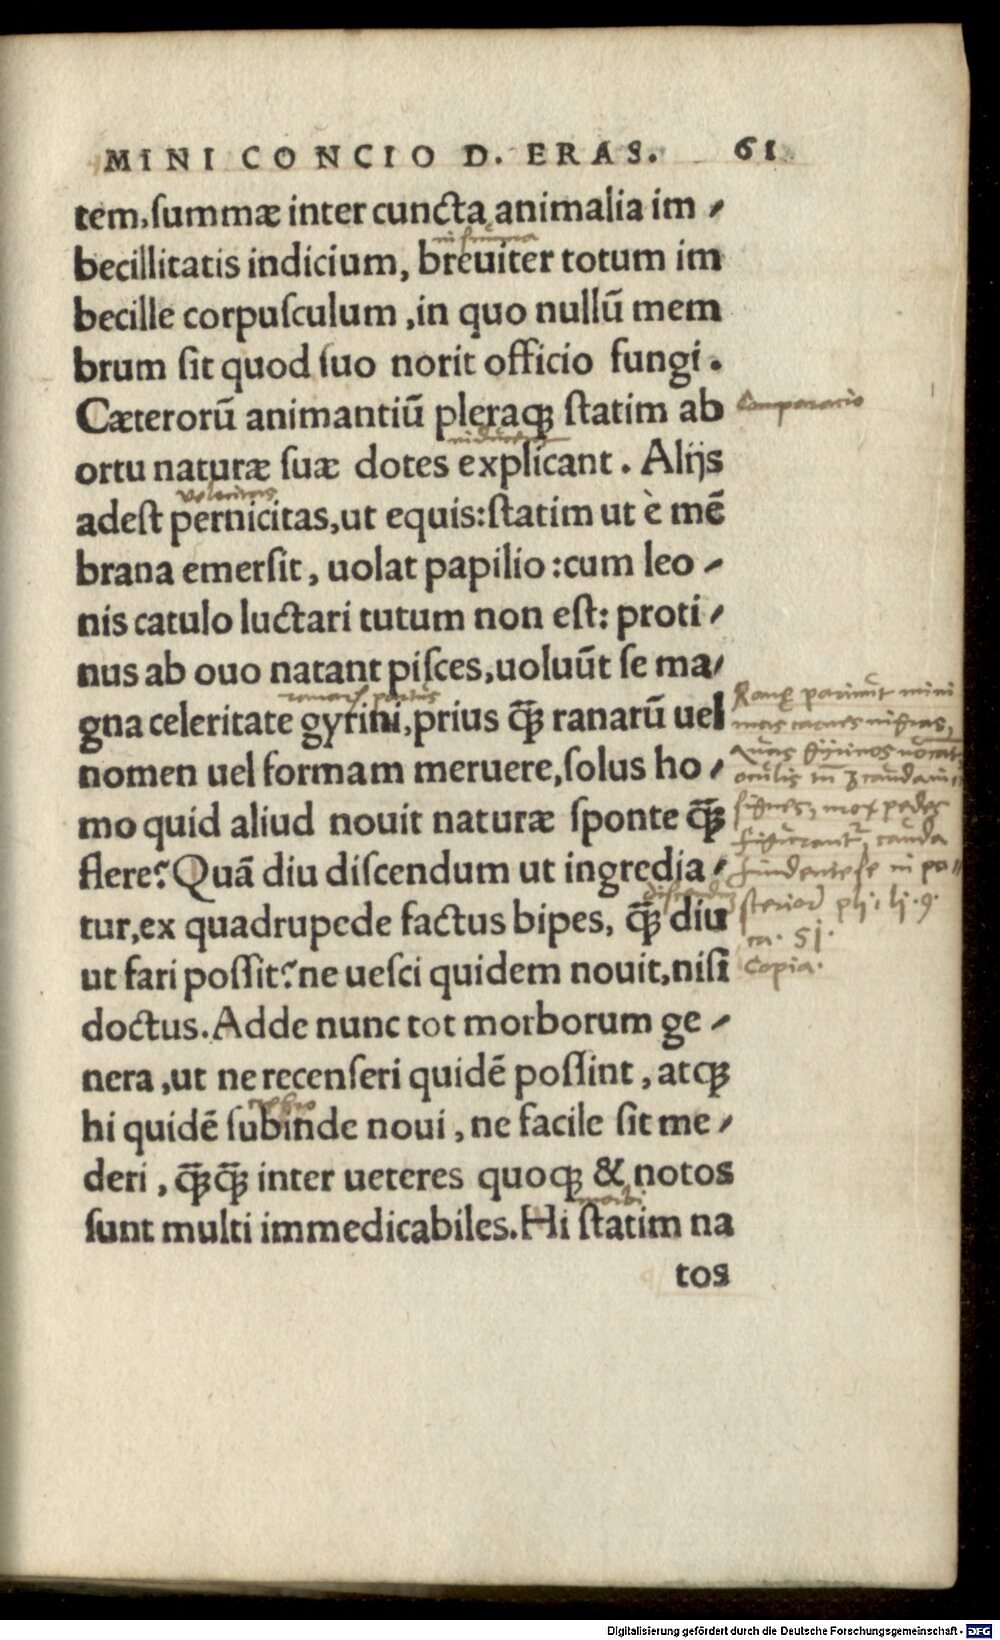 MINI CONCIO D. ERAS. 61
tem,ſummæ inter cuncta animalia im⸗
becillitatis indicium, breuiter totum im
becille corpuſculum ,in quo nullũ mem
brum ſit quod ſuo norit officio fungi.
Cæterorũ animantiũ pleraqꝫ ſtatim ab
Comparatio
ortu naturæ ſuæ dotes explicant. Alijs
velocitas
adeſt pernicitas,ut equis:ſtatim ut è mẽ
brana emerſit, uolat papilio:cum leo⸗
nis catulo luctari tutum non eſt: proti⸗
nus ab ouo natant piſces,uoluũt ſe ma⸗
gna celeritate gyrini,prius q̃ꝫ ranarũ uel
nomen uel formam meruere,ſolus ho⸗
mo quid aliud nouit naturæ ſponte q̃ꝫ
flere? Quã diu diſcendum ut ingredia⸗
tur,ex quadrupede factus bipes, q̃ꝫ diu
ut fari poſſit? ne ueſci quidem nouit,niſi
doctus. Adde nunc tot morborum ge⸗
nera ,ut ne recenſeri quidẽ poſſint, atqꝫ
hi quidẽ ſubinde noui, ne facile ſit me⸗
deri, q̃ꝫq̃ꝫ inter ueteres quoqꝫ & notos
morbi
ſunt multi immedicabiles. Hi ſtatim na
tos
Ranę pariunt mini
mas carnes nigras,
quas gyrinos vocat
figurant, cauda
Copia.
Digitalisierung gefördert durch die Deutsche Forschungsgemeinschaft - DFG